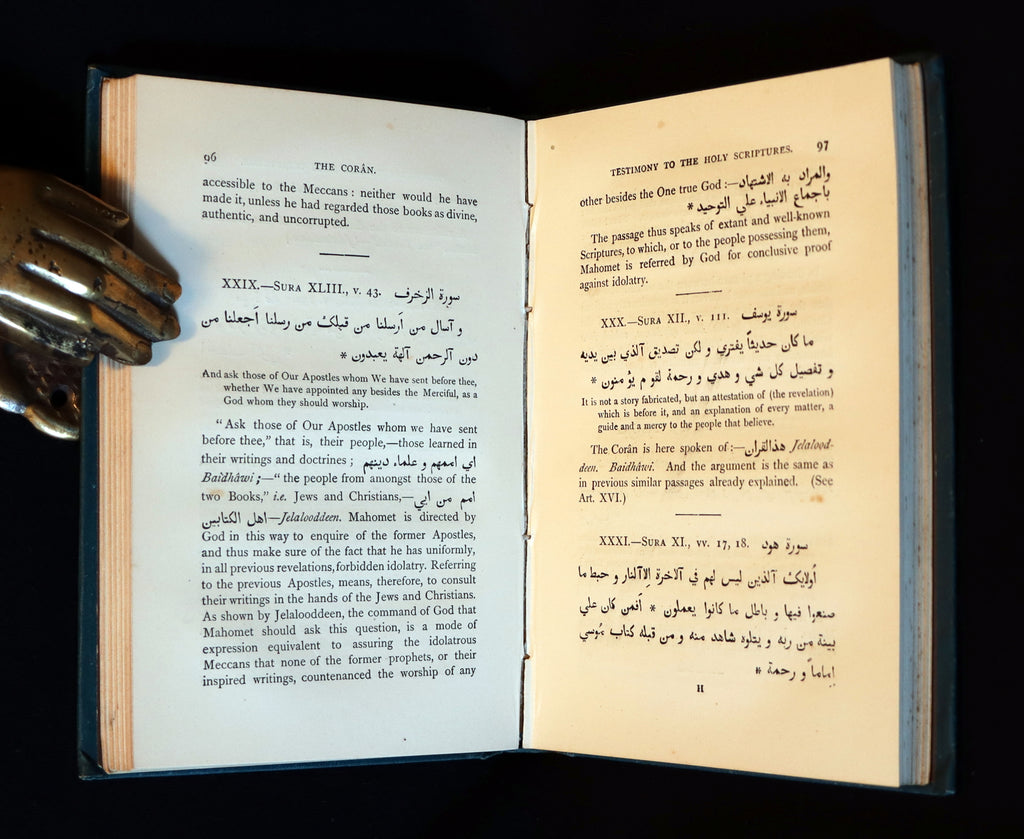 96
THE CORÂN.
accessible to the Meccans: neither would he have
made it, unless he had regarded those books as divine,
authentic, and uncorrupted.
XXIX.—SURA XLIII., v. 43. سورة الزخرف
و آسال من اَرسلنا من قبلك من رسلنا اَجعلنا من
دون آلرحمن آلهة يعبدون *
And ask those of Our Apostles whom We have sent before thee,
whether We have appointed any besides the Merciful, as a
God whom they should worship.
“Ask those of Our Apostles whom we have sent
before thee,” that is, their people,—those learned in
their writings and doctrines; اي اممهم و علماء دينهم
Baidhâwi;—“the people from amongst those of the
two Books,” i.e. Jews and Christians,—امم من ايي
اهل الكتابين—Jelalooddeen. Mahomet is directed by
God in this way to enquire of the former Apostles,
and thus make sure of the fact that he has uniformly,
in all previous revelations, forbidden idolatry. Referring
to the previous Apostles, means, therefore, to consult
their writings in the hands of the Jews and Christians.
As shown by Jelalooddeen, the command of God that
Mahomet should ask this question, is a mode of
expression equivalent to assuring the idolatrous
Meccans that none of the former prophets, or their
inspired writings, countenanced the worship of any
TESTIMONY TO THE HOLY SCRIPTURES. 97
other besides the One true God:—والمراد به الاشتهاد
باجماع الانبياء علي التوحيد *
The passage thus speaks of extant and well-known
Scriptures, to which, or to the people possessing them,
Mahomet is referred by God for conclusive proof
against idolatry.
XXX.—SURA XII., v. 111. سورة يوسف
ما كان حديثاً يفتري و لكن تصديق آلذي بين يديه
و تفصيل كل شي و هدي و رحمة لقوم يؤمنون *
It is not a story fabricated, but an attestation of (the revelation)
which is before it, and an explanation of every matter, a
guide and a mercy to the people that believe.
The Corân is here spoken of:—هذالقران Jelalood-
deen. Baidhâwi. And the argument is the same as
in previous similar passages already explained. (See
Art. XVI.)
XXXI.—SURA XI., vv. 17, 18. سورة هود
اُولايك آلذين ليس لهم في آلاخرة اِلاآلنار و حبط ما
صنعوا فيها و باطل ما كانوا يعملون * اَفمن كان علي
بينة من ربه و يتلوه شاهد منه و من قبله كتاب مُوسي
اِماماً و رحمة *
H